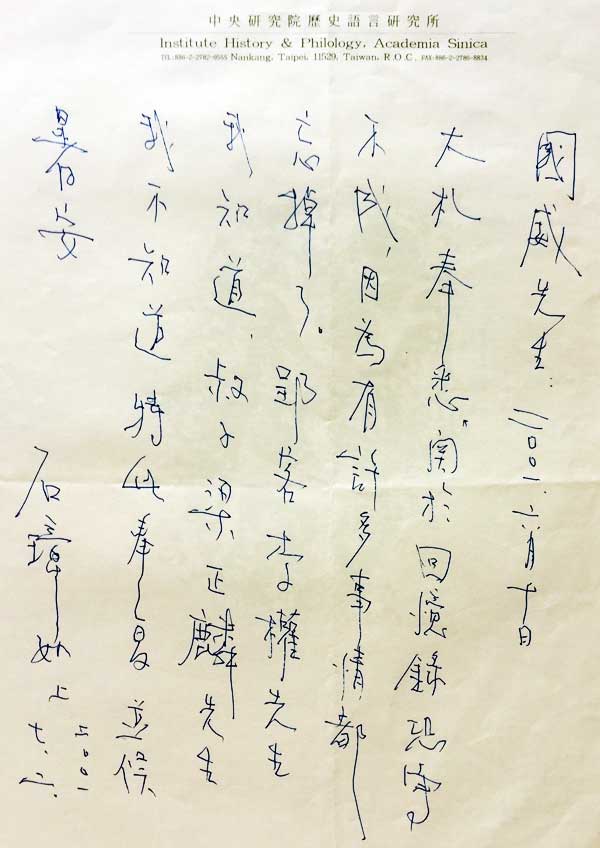 中央研究院歷史語言研究所
Institute History & Philology, Academia Sinica
TEL:886-2-2782-9555 Nankang, Taipei, 11529, Taiwan, R.O.C. FAX:886-2-2786-8834
國威先生：二〇〇一.六月十日
大札奉悉，關於回憶錄恐寫
不成，因為有許多事情都
忘掉了。郭豫才李權先生
我知道，叔子梁正麟先生
我不知道特此奉复並候
暑安
石璋如上
二〇〇一
七.二.